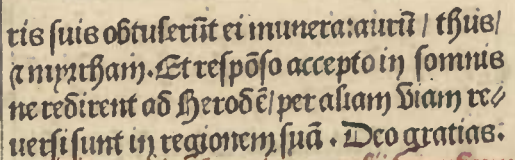 ris suis obtulerūt ei munera: aurū / thus /
⁊ myrrham. Et respōso accepto in somnis
ne redirent ad Herodē / per aliam viam re⸗
uersi sunt in regionem suā. Deo gratias: